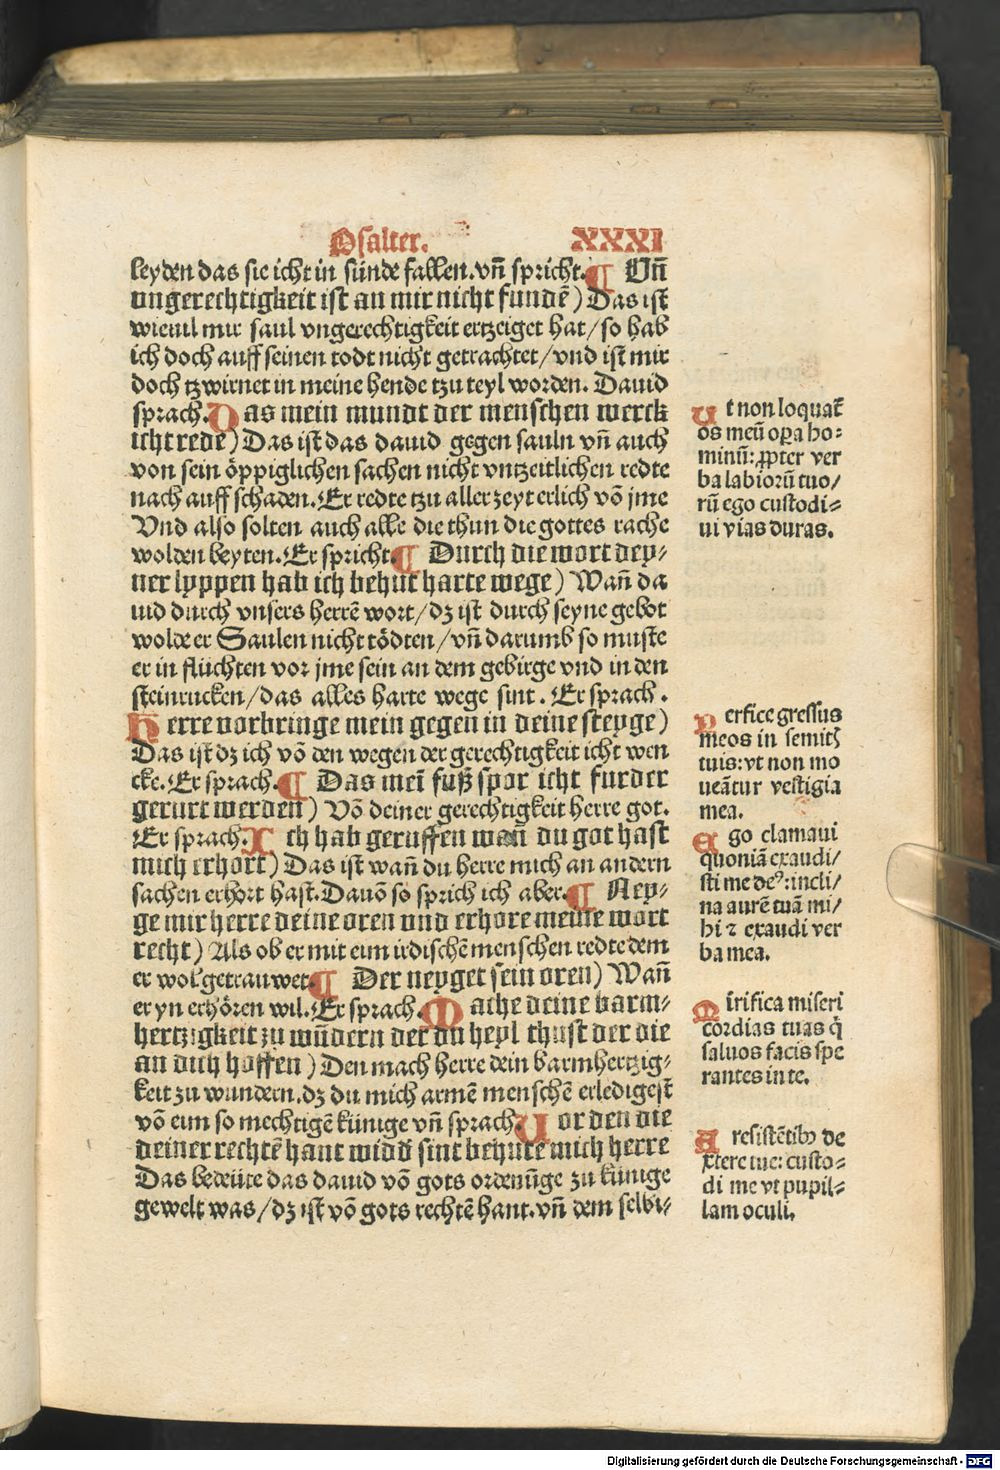 Psalter. XXXI
leyden das sie icht in sünde fallen. vñ spricht. ¶ Vñ
ungerechtigkeit ist an mir nicht fundē) Das ist
wieuil mir saul vngerechtigkeit ertzeiget hat/ so hab
ich doch auff seinen todt nicht getrachtet/ vnd ist mir
doch tzwirnet in meine hende tzu teyl worden. Dauid
sprach. Das mein mundt der menschen werck
icht rede) Das ist das dauid gegen sauln vñ auch
von sein öppiglichen sachen nicht vntzeitlichen redte
nach auff schaden. Er redte tzu aller zeyt erlich vō jme
Vnd also solten auch alle die thun die gottes rache
wolden beyten. Er spricht. ¶ Durch die wort dey-
ner lyppen hab ich behut harte wege) Wañ da
uid durch vnsers herrē wort/ dz ist durch seyne gebot
wolde er Saulen nicht tödten/ vñ darumb so muste
er in flüchten vor jme sein an dem gebirge vnd in den
steinrucken/ das alles harte wege sint. Er sprach.
Herre vorbringe mein gegen in deine steyge)
Das ist dz ich vō den wegen der gerechtigkeit icht wen
cke. Er sprach. ¶ Das meī fuß spor icht furder
gerurt werden) Vō deiner gerechtigkeit herre got.
Er sprach. Ich hab geruffen wañ du got hast
mich erhort) Das ist wañ du herre mich an andern
sachen erhort hast. Dauō so sprich ich aber. ¶ Ney-
ge mir herre deine oren vnd erhore meine wort
recht) Als ob er mit eim irdischē menschen redte dem
er wol getrauwet. ¶ Der neyget sein oren) Wañ
er yn erhören wil. Er sprach. Mache deine barm-
hertzigkeit zu wūdern der du heyl thust der die
an dich hoffen) Den mach herre dein barmhertzig-
keit zu wundern. dz du mich armē menschē erledigest
vō eim so mechtigē künige vñ sprach. Vor den die
deiner rechtē hant widd sint behute mich herre
Das bedeüte das dauid vō gots ordenūge zu künige
gewelt was/ dz ist vō gots rechtē hant. vñ dem selbi-
Ut non loquat̄
os meū oꝑa ho-
minū: ꝓpter ver
ba labiorū tuo/
rū ego custodi-
ui vias duras.
Perfice gressus
meos in semitꝭ
tuis: vt non mo
ueātur vestigia
mea.
Ego clamaui
quoniā exaudi/
sti me deꝰ: incli/
na aurē tuā mi/
hi ⁊ exaudi ver
ba mea.
Mirifica miseri
cordias tuas q̄
saluos facis spe
rantes in te.
A resistētibꝰ de
xtere tue: custo-
di me vt pupil-
lam oculi.
Digitalisierung gefördert durch die Deutsche Forschungsgemeinschaft - DFG